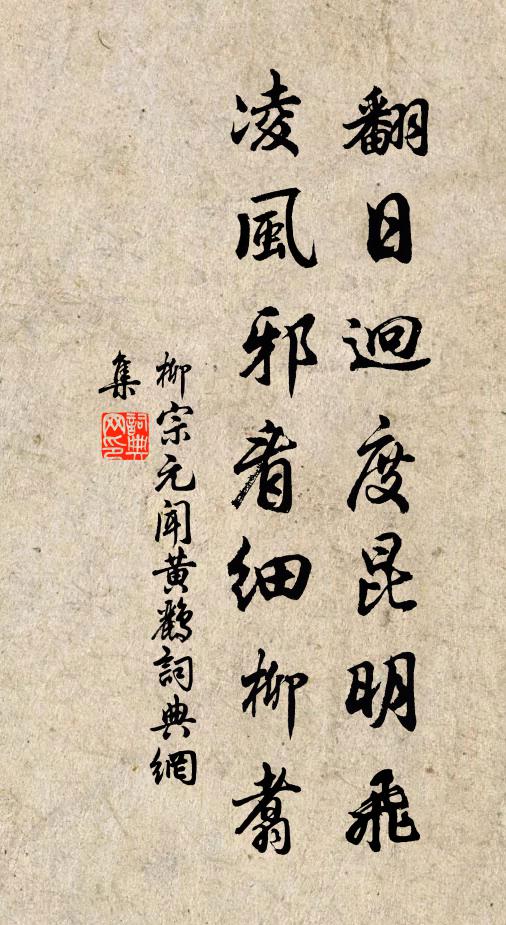 翻日迥度昆明飛
凌風邪看細柳翥
柳宗元聞黃鸝詞典網
集
詞典
网印